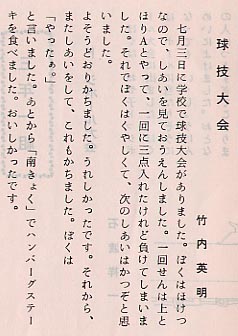 球技大会
竹内英明
七月三日に学校で球技大会がありました。ぼくはほけつ
なので、しあいを見ておうえんしました。一回せんは上と
ほりAとやって、一回に三点入れたけれど負けてしまいま
した。それでぼくはくやしくて、次のしあいはかつぞと思
いました。
よそうどおりかちました。うれしかったです。それから、
またしあいをして、これもかちました。ぼくは
「やったぁ。」
と言いました。あとから「南きょく」でハンバーグステー
キを食べました。おいしかったです。